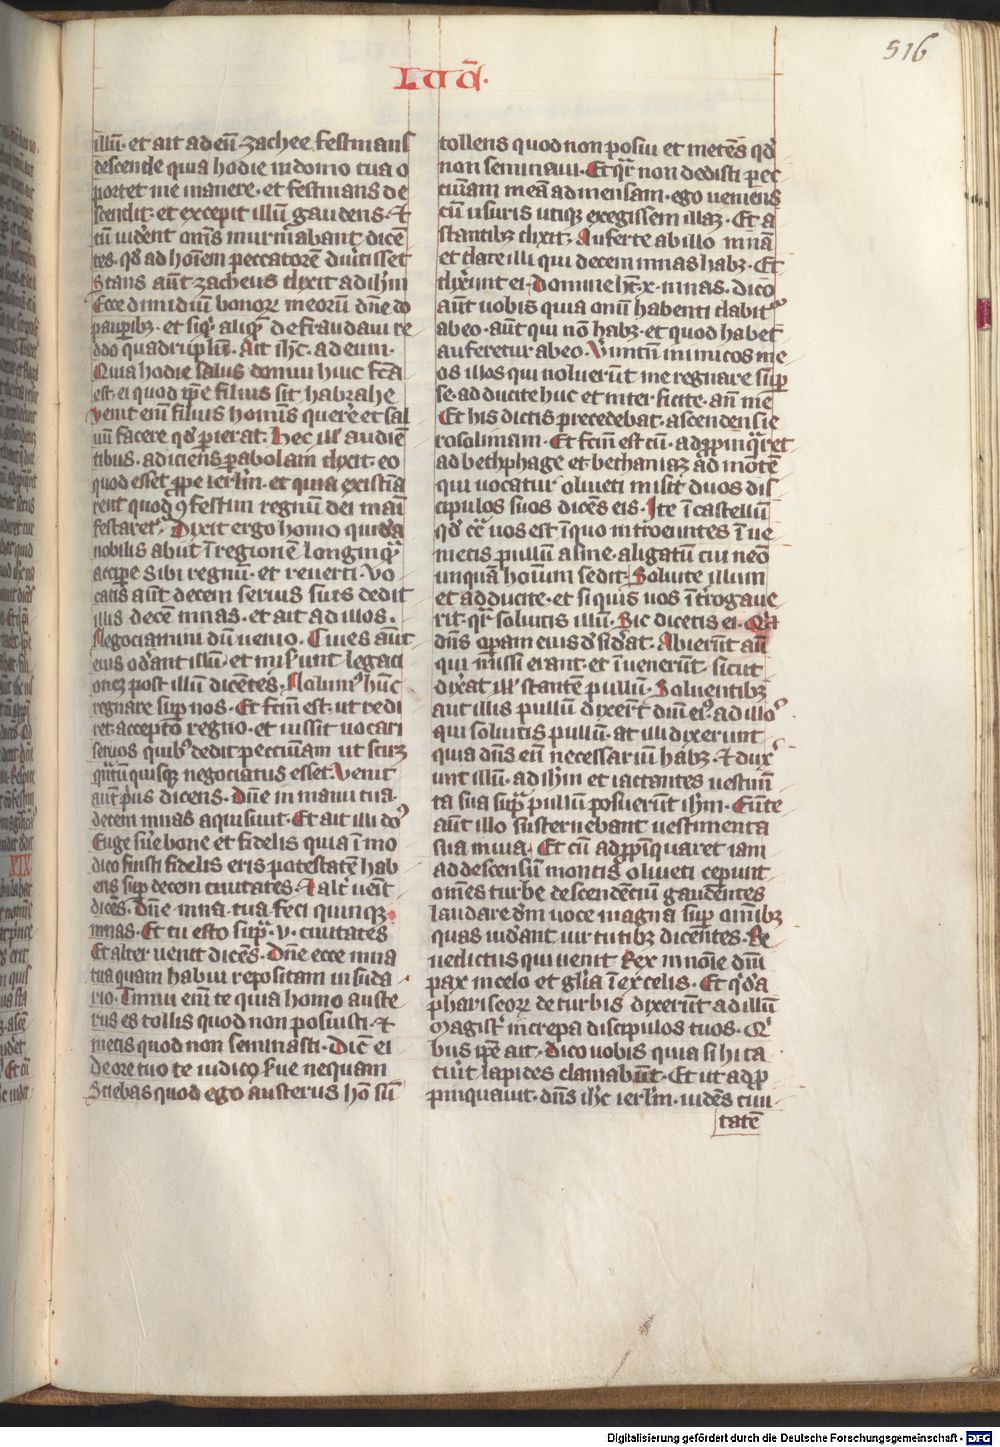 516
LUCA
illū · et ait ad eū · zachee festinans
descende quia hodie in domo tua o
portet me manere · et festinans de
scendit · et excepit illū gaudens · Et
cū uid'ent om̄s murm'abant dicē
tes · qd' ad hoīem peccatorē diu'tisset
Stans aūt zacheus dixit ad ih'm
Ecce dimidiū bonor meorū dn̄e do
paup'ibz · et si qd' aliqm defraudaui re
ddo quadruplū · Ait ih'c · ad eum ·
Quia hodie salus domui huic fc̄a
est · ei quod ip̄e filius sit habrahe
Venit eni' filius hominis querē et sal
uū facere qd' pierat · Hec ill' audiē
tibus · adiciens pabolam dixit · eo
quod esset ppe ierlm · et quia existīa
rent quod 9festim regnum dei mani
festaret' · Dixit ergo homo quida
nobilis abiit ī regionē longinqua
accipe sibi regnū · et reuerti · Vo
catis aūt decem seruis suis dedit
illis decē mnas · et ait ad illos ·
Negociamini dū uenio · Ciues aūt
eius od'ant illū · et mis'unt legaci
onez post illū dicentes · Nolum' hūc
regnare sup nos · Et fc̄m est · ut redi
ret · accepto regno · et iussit uocari
seruos quib' dedit pecciniam ut sciret
q̄ntū quisqz negociatus esset · Venit
aūt p'us dicens · Dn̄e in manu tua ·
decem mnas aquisiuit · Et ait illi do'
Euge s'ue bone et fidelis quia ī mo
dico fuisti fidelis eris potestatē hab
ens sup decem ciuitates · Et alt' uenit
dicēs · Dn̄e mna tua feci quinqz
mnas · Et tu esto sup' · v · ciuitates
Et alter uenit dicēs · Dn̄e ecce mna
tua quam habui repositam in suda
rio · Timui eni' te quia homo auste
rus es tollis quod non posuisti · Et
metis quod non seminasti · Dic' ei
De ore tuo te iudico s'ue nequam
Sciebas quod ego austerus hō sum
tollens quod non posui et metēs qd'
non seminaui · Et qr' non dedisti pec
ciūam meā ad mensam · ego ueniens
cū usuris utiqz exegissem illaz · Et a
stantibz dixit · Auferte ab illo mnā
et date illi qui decem mnas habz · Et
dix'unt ei · Domine ht · x · mnas · dico
aūt uobis quia omī habenti dabit'
ab eo · aūt qui nō habz · et quod habet
auferetur ab eo · Verūtū inimicos me
os illos qui noluerūt me regnare sup
se · adducite huc et interficite · an̄ me
Et his dictis precedebat · ascendens ie
rosolimam · Et fc̄m est cū · adppinqret
ad bethphage et bethaniaz ad mōtē
qui uocatur oliueti misit duos dis
cipulos suos dicēs eis · Ite ī castellū
qd' cc' uos est ī quo introeuntes ī ue
nietis pullū asine · aligatū cui neō
unquā hoīum sedit · Soluite illum
et adducite · et si quis uos īt'rogaue
rit · qr' soluitis illū · Sic dicetis ei · Qa
dn̄s opam eius d'sid'at · Abierūt aū
qui missi erant · et ī uenerūt · sicut
dix'at ill' stantē pullū · Soluentibz
aut illis pullū dixerūt dn̄i ei' · ad illo'
qui soluitis pullū · at illi dixerunt
quia dn̄s eū necessariū habz · Et dux'
unt illū · ad ih'm et iactantes uestim'
ta sua sup' pullū posuerūt ih'm · Eunte
aūt illo susternebant uestimenta
sua in uia · Et cū adppīquaret iam
ad descensū montis oliueti cepunt
omēs turbe descendenciū gaudentes
laudare dm̄ uoce magna sup omībz
quas uid'ant uirtutibz dicentes · Be
nedictus qui uenit Rex in nōie dn̄i
pax in celo et gl'ia ī excelis · Et qda
phariseor de turbis dixerūt ad illū
Magist' increpa discipulos tuos · Q'
bus ip̄e ait · Dico uobis quia si hi ta
cu'it lapides clamabunt · Et ut adpp
pinquauit · dn̄s ih'c ierlm · uidēs ciui
tatē
XIX
Digitalisierung gefördert durch die Deutsche Forschungsgemeinschaft - DFG